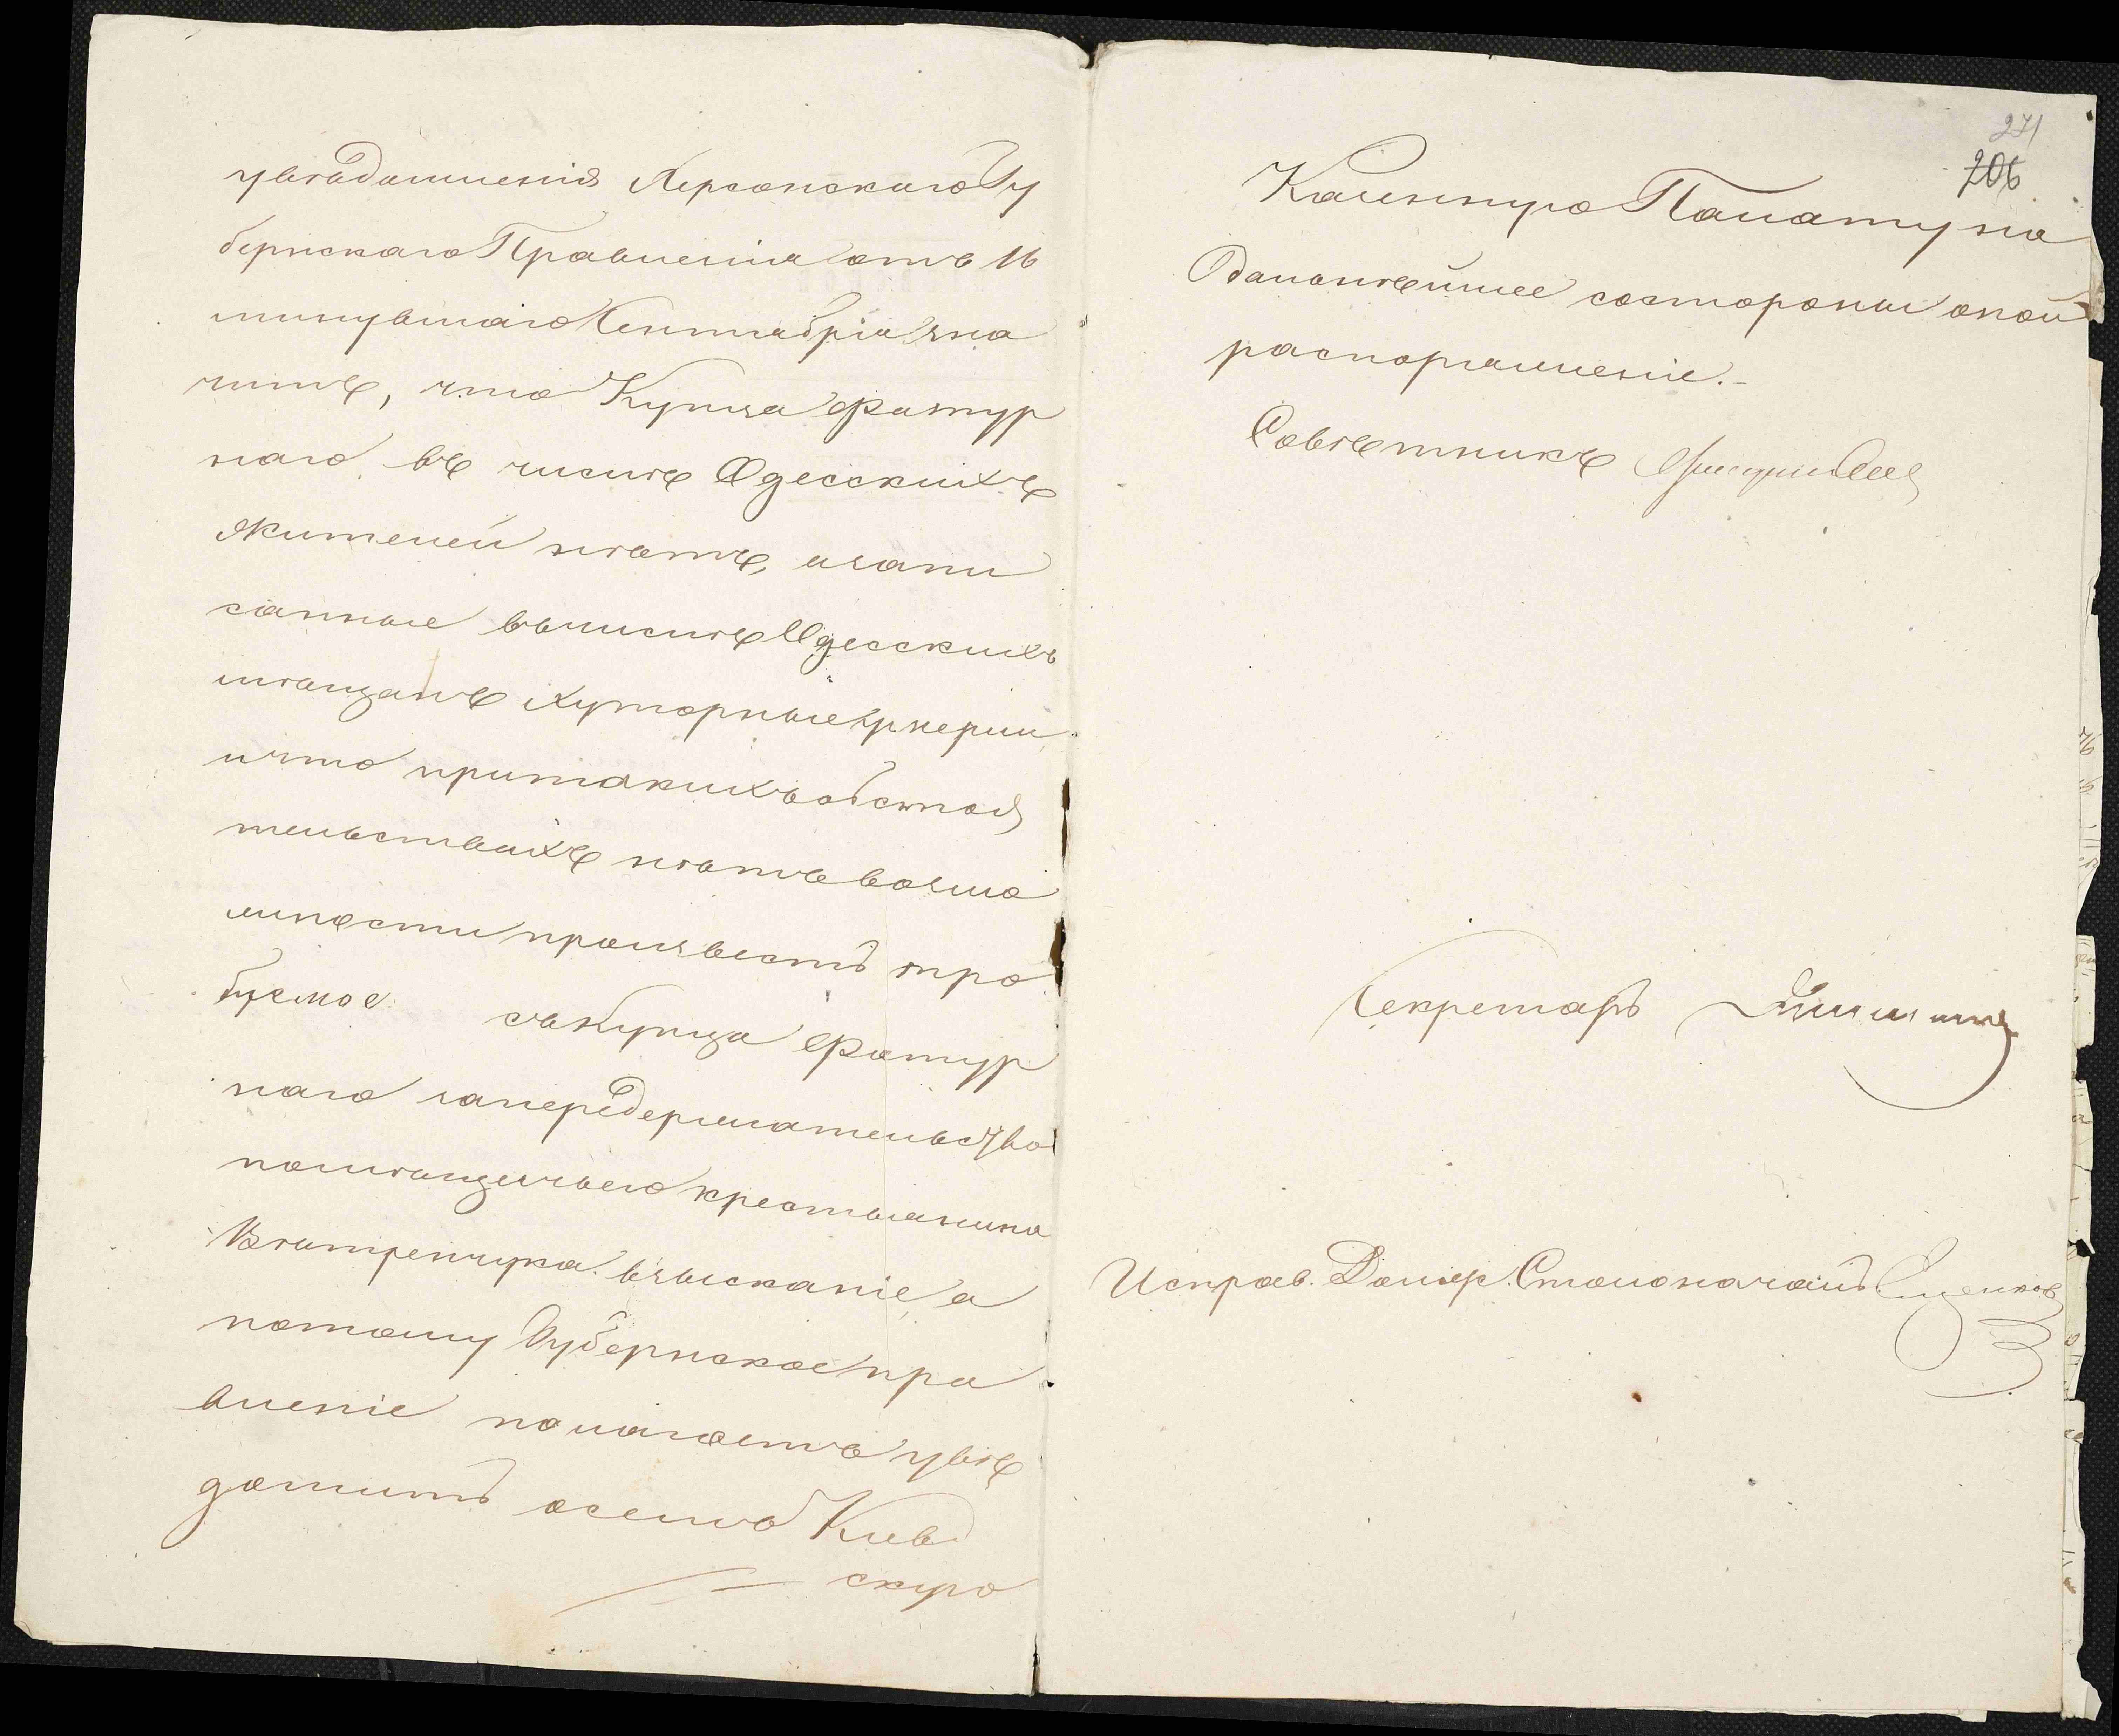 увѣдомленія Херсонскаго Гу
бернскаго Правленія отъ 16
минувшаго Сентября зна
читъ, что Купца Фатур
наго въ числѣ Одесскихъ
жителей нѣтъ, а запи
санные въ числѣ Одесскихъ
мѣщанъ Хуторные умерли
и что при такихъ обстоя
тельствахъ нѣтъ возмо
жности произвесть тре
буемое съ купца Фатур
наго за передержательство
помѣщичьего крестьянина
Вѣтренчука взысканіе, а
потому Губернское пра
вленіе полагаетъ увѣ
домить о семъ Кіев
скую
271
206
Казенную Палату на
дальнѣйшее со стороны оной
распоряженіе.
Совѣтникъ
Секретарь
Исправ. Долж. Столоначаль.